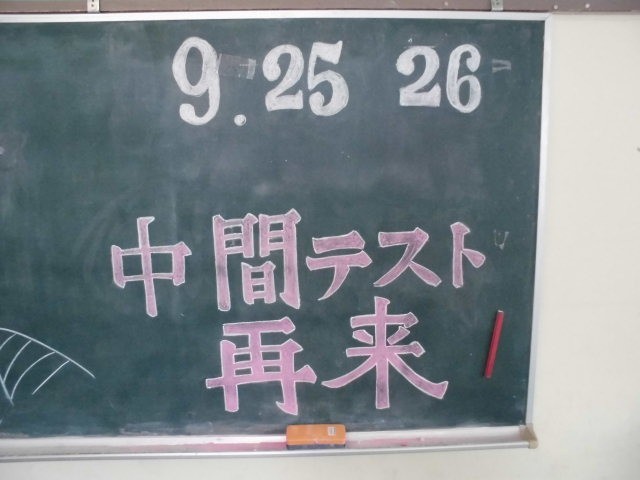 9.25 26
中間テスト
再来